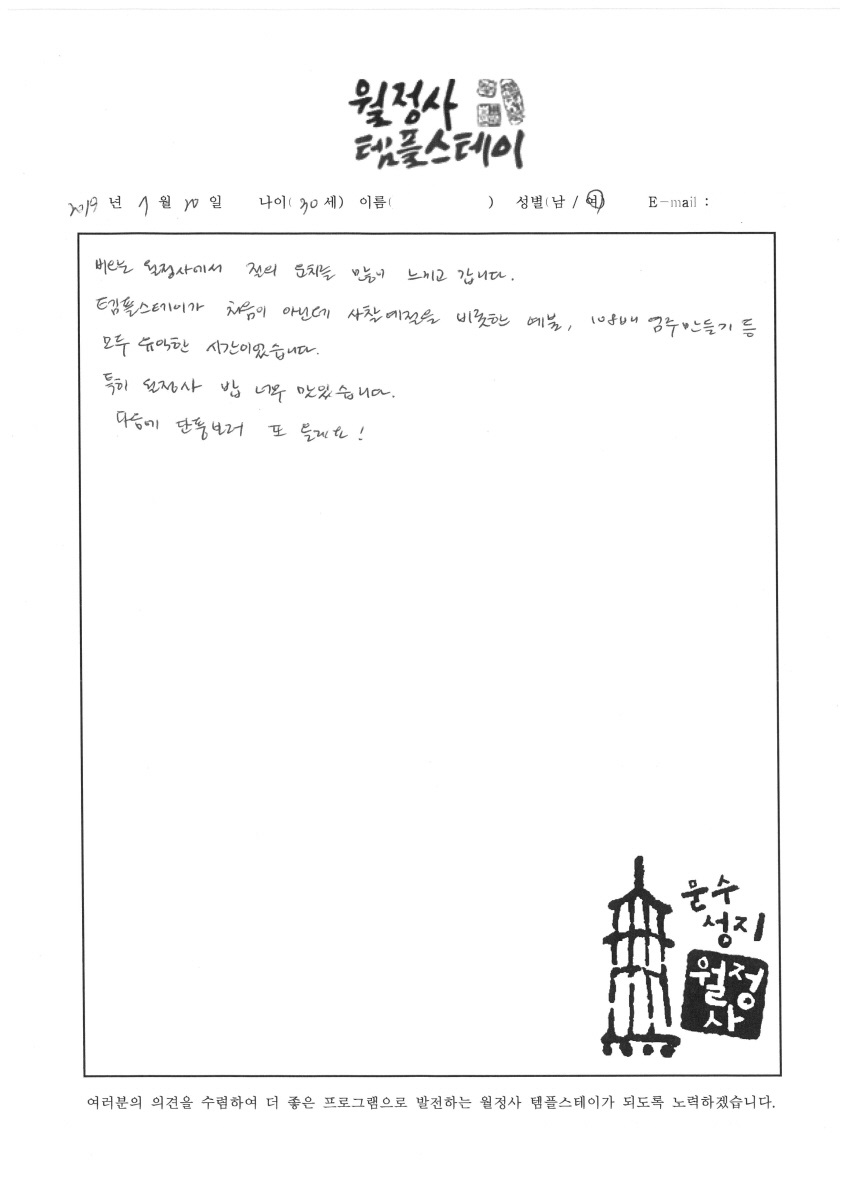 월정사
템플스테이
2019 년 7 월 20 일 나이( 30 세) 이름( ) 성별(남 / 여) E-mail :
월정사에서 절의 운치를 만끽 느끼고 갑니다.
템플스테이가 처음이 아닌데 사찰예절을 비롯한 예불, 108배 염주만들기 등
모두 유익한 시간이었습니다.
특히 월정사 밥 너무 맛있습니다.
다음에 단풍보러 또 올래요!
문수
성지
월정
사
여러분의 의견을 수렴하여 더 좋은 프로그램으로 발전하는 월정사 템플스테이가 되도록 노력하겠습니다.